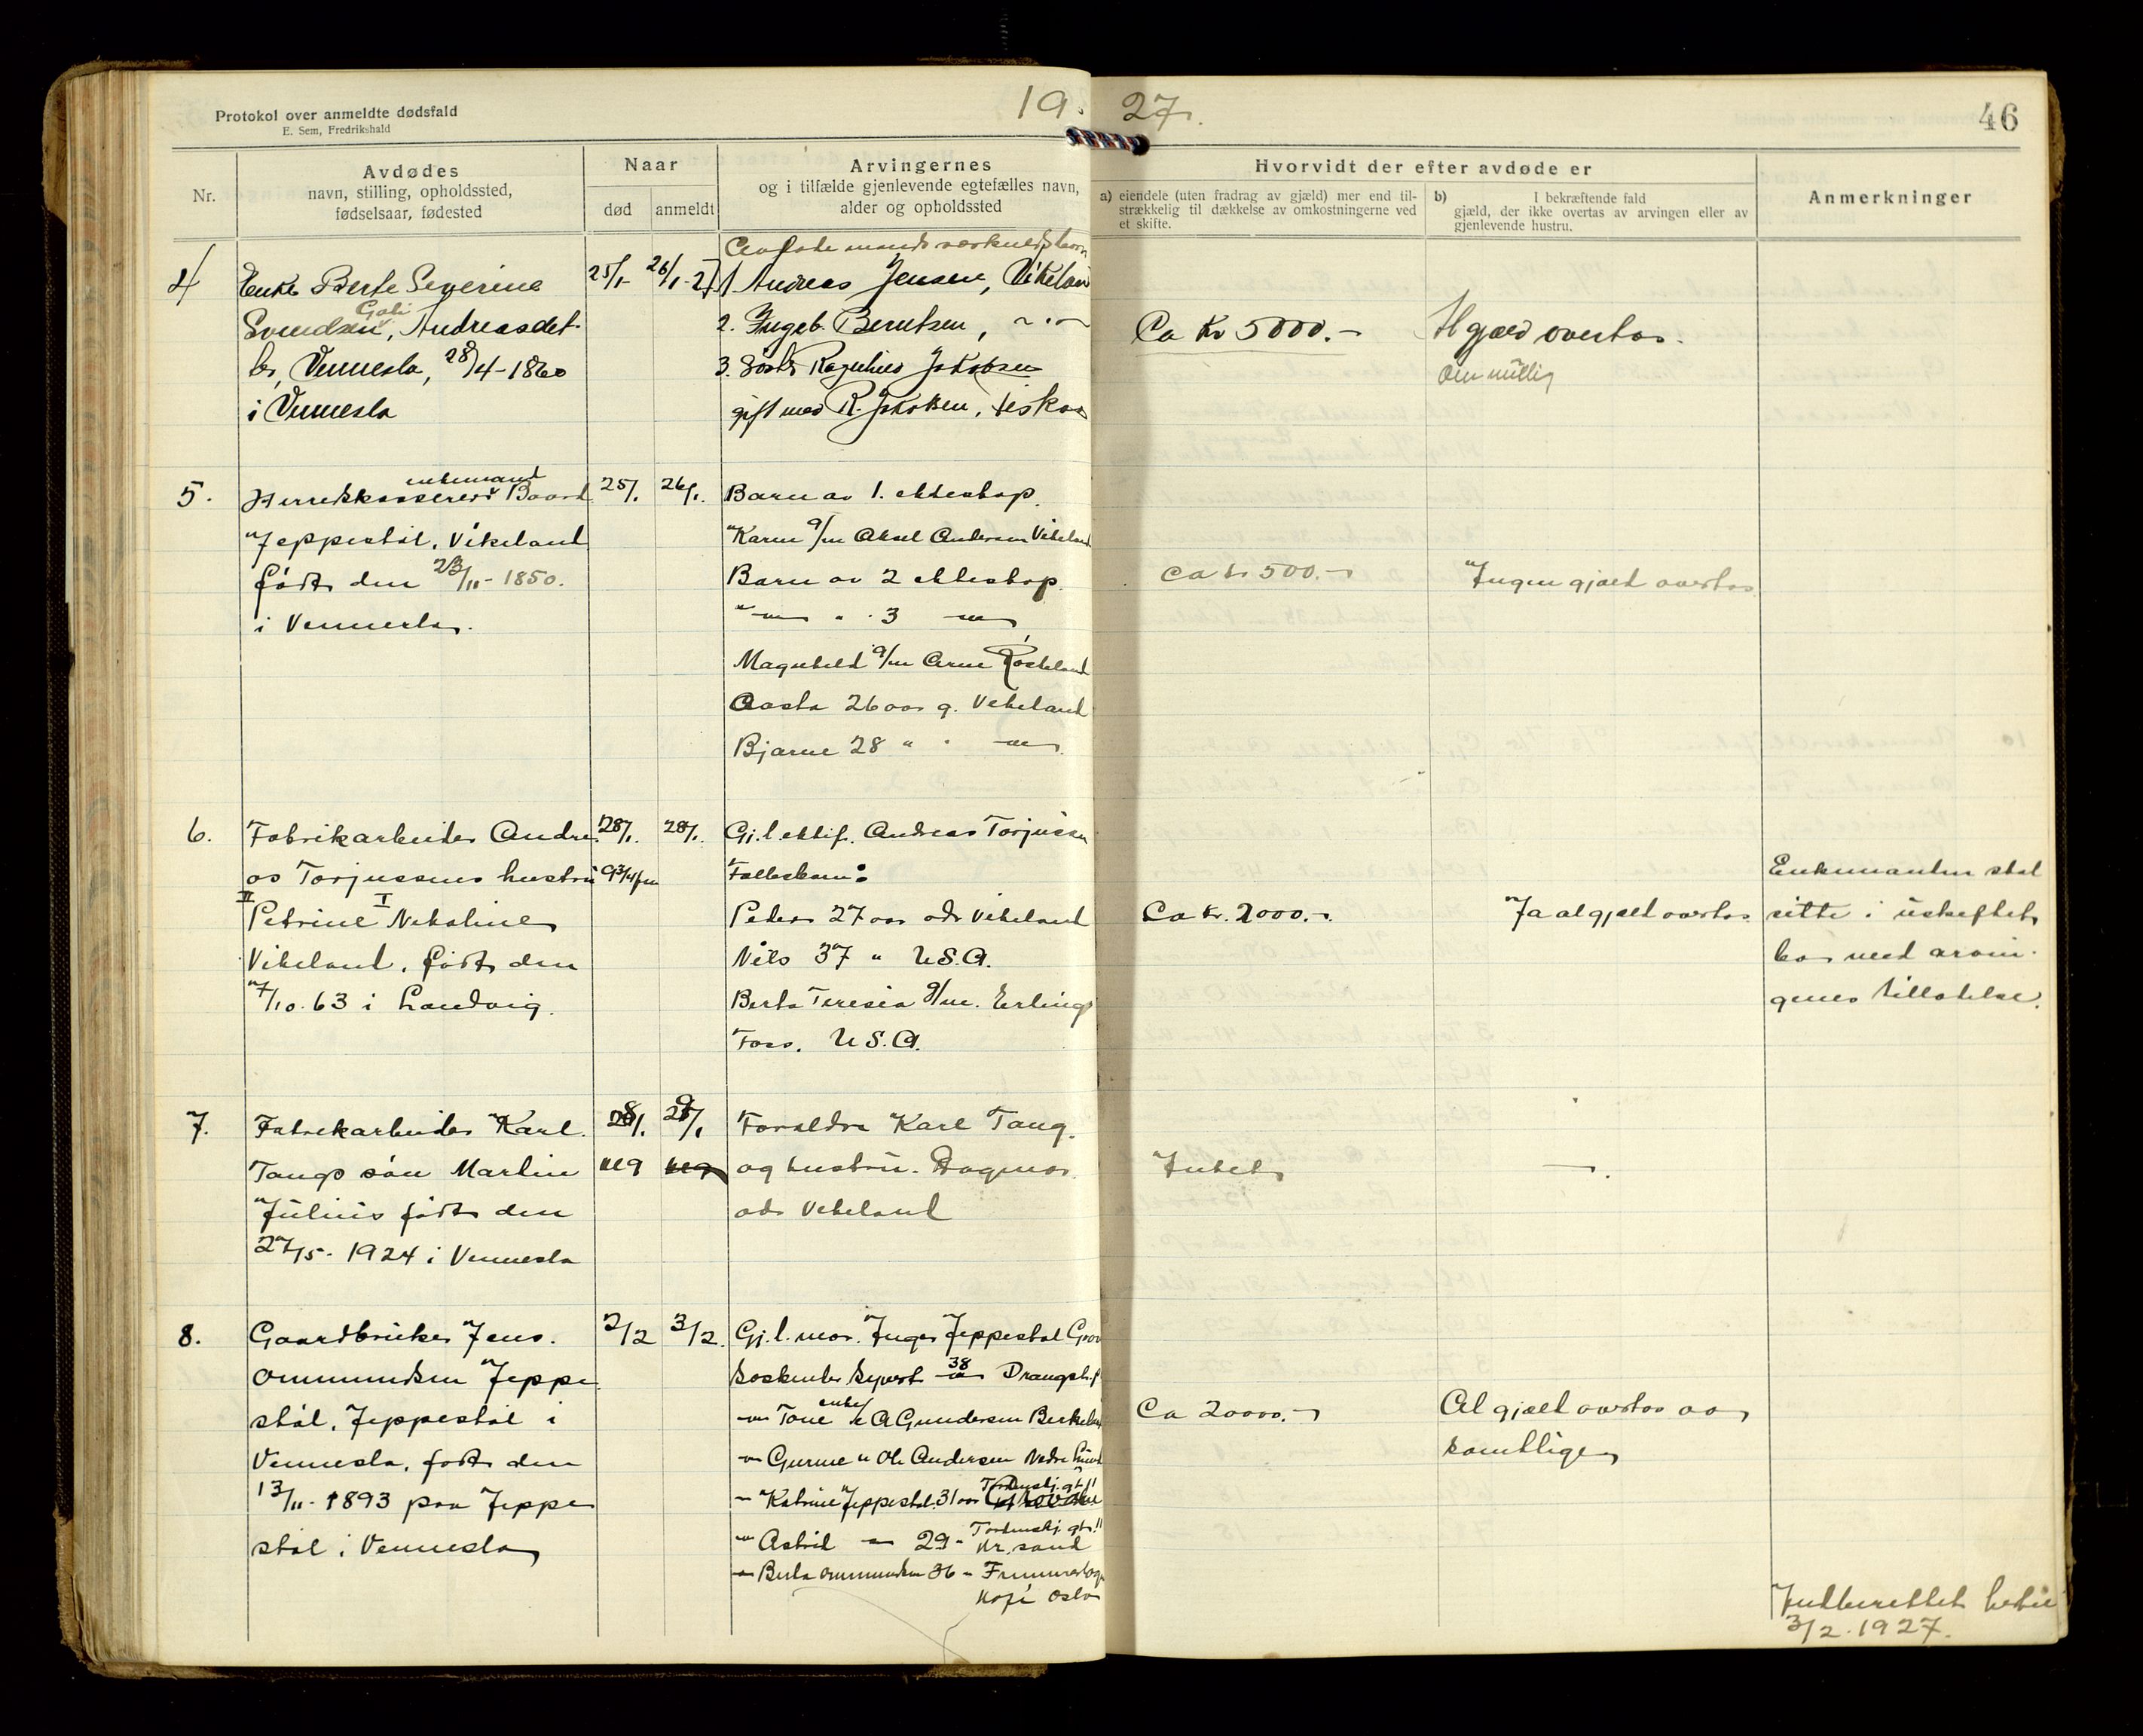 Protokol over anmeldte dødsfald
E. Sem, Fredrikshald
19 27.
46
Nr.
Avdødes
navn, stilling, opholdssted,
fødselsaar, fødested
Naar
død
anmeldt
Arvingernes
og i tilfælde gjenlevende egtefælles navn,
alder og opholdssted
Hvorvidt der efter avdøde er
a) eiendele (uten fradrag av gjæld) mer end til-
strækkelig til dækkelse av omkostningerne ved
et skifte.
b) I bekræftende fald
gjæld, der ikke overtas av arvingen eller av
gjenlevende hustru.
Anmerkninger
4
Enke Berte Severine
Svendsen, Andreasdet-
Vennesla, 28/4-1860
i Vennesla
25/1-
26/1-27
1 Andreas Jensen,
2. Ingeb. Berntsen, - " -
3. Jakobsen
gift med R. Jakobsen,
Ca Kr 5000.-
Al gjæld overtas.
5.
Herredskasserer enkemand
Jeppestøl, Vikeland
født den 23/11-1850.
i Vennesla.
25/1.
26/1.
Barn av 1. ekteskap.
Karen g/m Aksel Andersen Vikeland
Barn av 2 ekteskap.
-"- " . 3 -"-
Magnhild g/m Arne
Aasta 26 aar g. Vikeland
Bjarne 28 " . -"-
Ca kr 500.-
Ingen gjæld overtas
6.
Fabrikarbeider Andre-
as Torjussens hustru
II I
Petrine Nikoline
Vikeland, født den
7/10.63 i Landvig.
28/1.
9 3/4 fm
28/1.
Gj.l. ektef. Andreas Torjussen
Fellesbarn:
Peder 27 aar adr Vikeland
Nils 37 " U.S.A.
Berta Teresia g/m. Erling
Foss. U.S.A.
Ca kr. 2000.-
Ja al gjæld overtas
Enkemanden skal
sitte i uskiftet
bo med arvin-
genes tillatelse.
7.
Fabrikarbeider Karl
Tangs søn Martin
Julius født den
27/5-1924 i Vennesla
28/1.
kl 9
29/1
Foreldre Karl Tang.
og hustru. Dagmar.
adr Vikeland
Intet
-.
8.
Gaardbruker Jens.
Ommundsen Jeppe
støl. Jeppestøl i
Vennesla, født den
13/11-1893 paa Jeppe
støl i Vennesla
2/2
3/2.
Gj.l. mor. Inger Jeppestøl
Søskende Syvert 38
-"- Tone enke e/ A Gundersen
-"- Gurine " Ole Andersen
-"- Katrine Jeppestøl. 31 aar Tordenskj. gt. 11
-"- Astrid -"- 29 - Tordenskj. gt. 11
Kr.sand
-"- Berta Ommundsen 36 -
Oslo
Ca 20000.-
Al gjæld overtas av
samtlige
Indberettet hertil
3/2.1927.